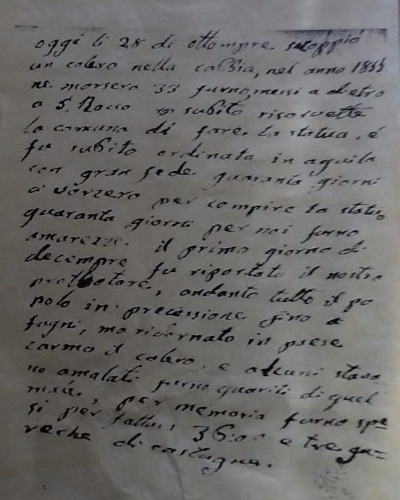 oggi li 28 di ottompre scoppiò
un colero nella cabbia, nel anno 1855
ne morsero 33 furno, messi a dietro
a S. Rocco subito risorvette
la comuna di fare la statua, é
fu subito ordinata in aquila
con gran fede quaranta giorni
ci vorzero per compire la statua
quaranta giorni per noi furno
amarezze. il primo giorno di
decempre fu riportato il nostro
protettore, andante tutto il po
polo in precessione fino a
fugni, ma ritornato in paese
il colero, e alcuni stava
no amalati furno quariti di quel
per memoria furno spe
si per fattu 36:00 e tre qu=
reche di castagne.